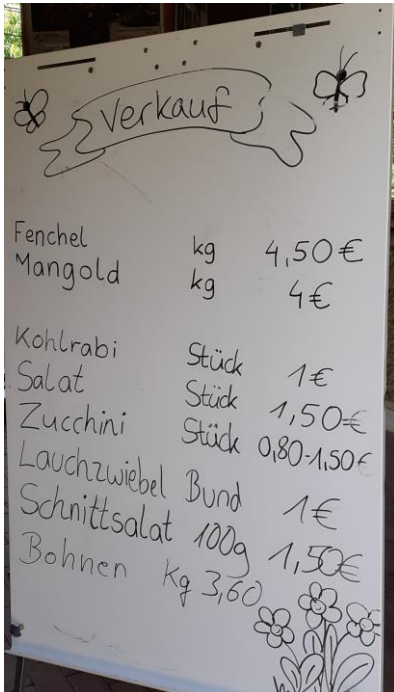 Verkauf
Fenchel kg 4,50€
Mangold kg 4€
Kohlrabi Stück 1€
Salat Stück 1,50€
Zucchini Stück 0,80-1,50€
Lauchzwiebel Bund 1€
Schnittsalat 100g 1,50€
Bohnen Kg 3,60